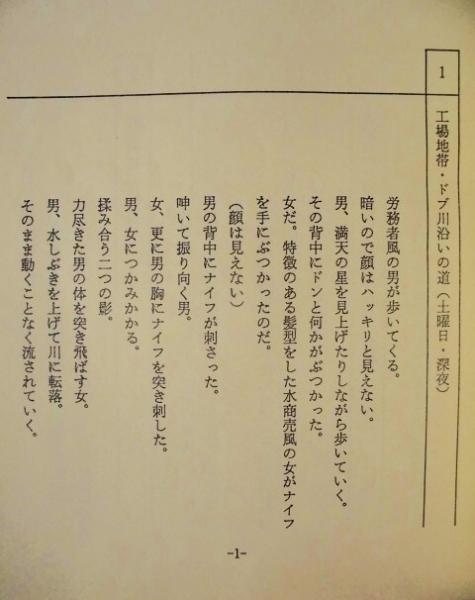 1
工場地帯・ドブ川沿いの道（土曜日・深夜）
労務者風の男が歩いてくる。
暗いので顔はハッキリと見えない。
男、満天の星を見上げたりしながら歩いていく。
その背中にドンと何かがぶつかった。
女だ。特徴のある髪型をした水商売風の女がナイフ
を手にぶつかったのだ。
（顔は見えない）
男の背中にナイフが刺さった。
呻いて振り向く男。
女、更に男の胸にナイフを突き刺した。
男、女につかみかかる。
揉み合う二つの影。
力尽きた男の体を突き飛ばす女。
男、水しぶきを上げて川に転落。
そのまま動くことなく流されていく。
-1-